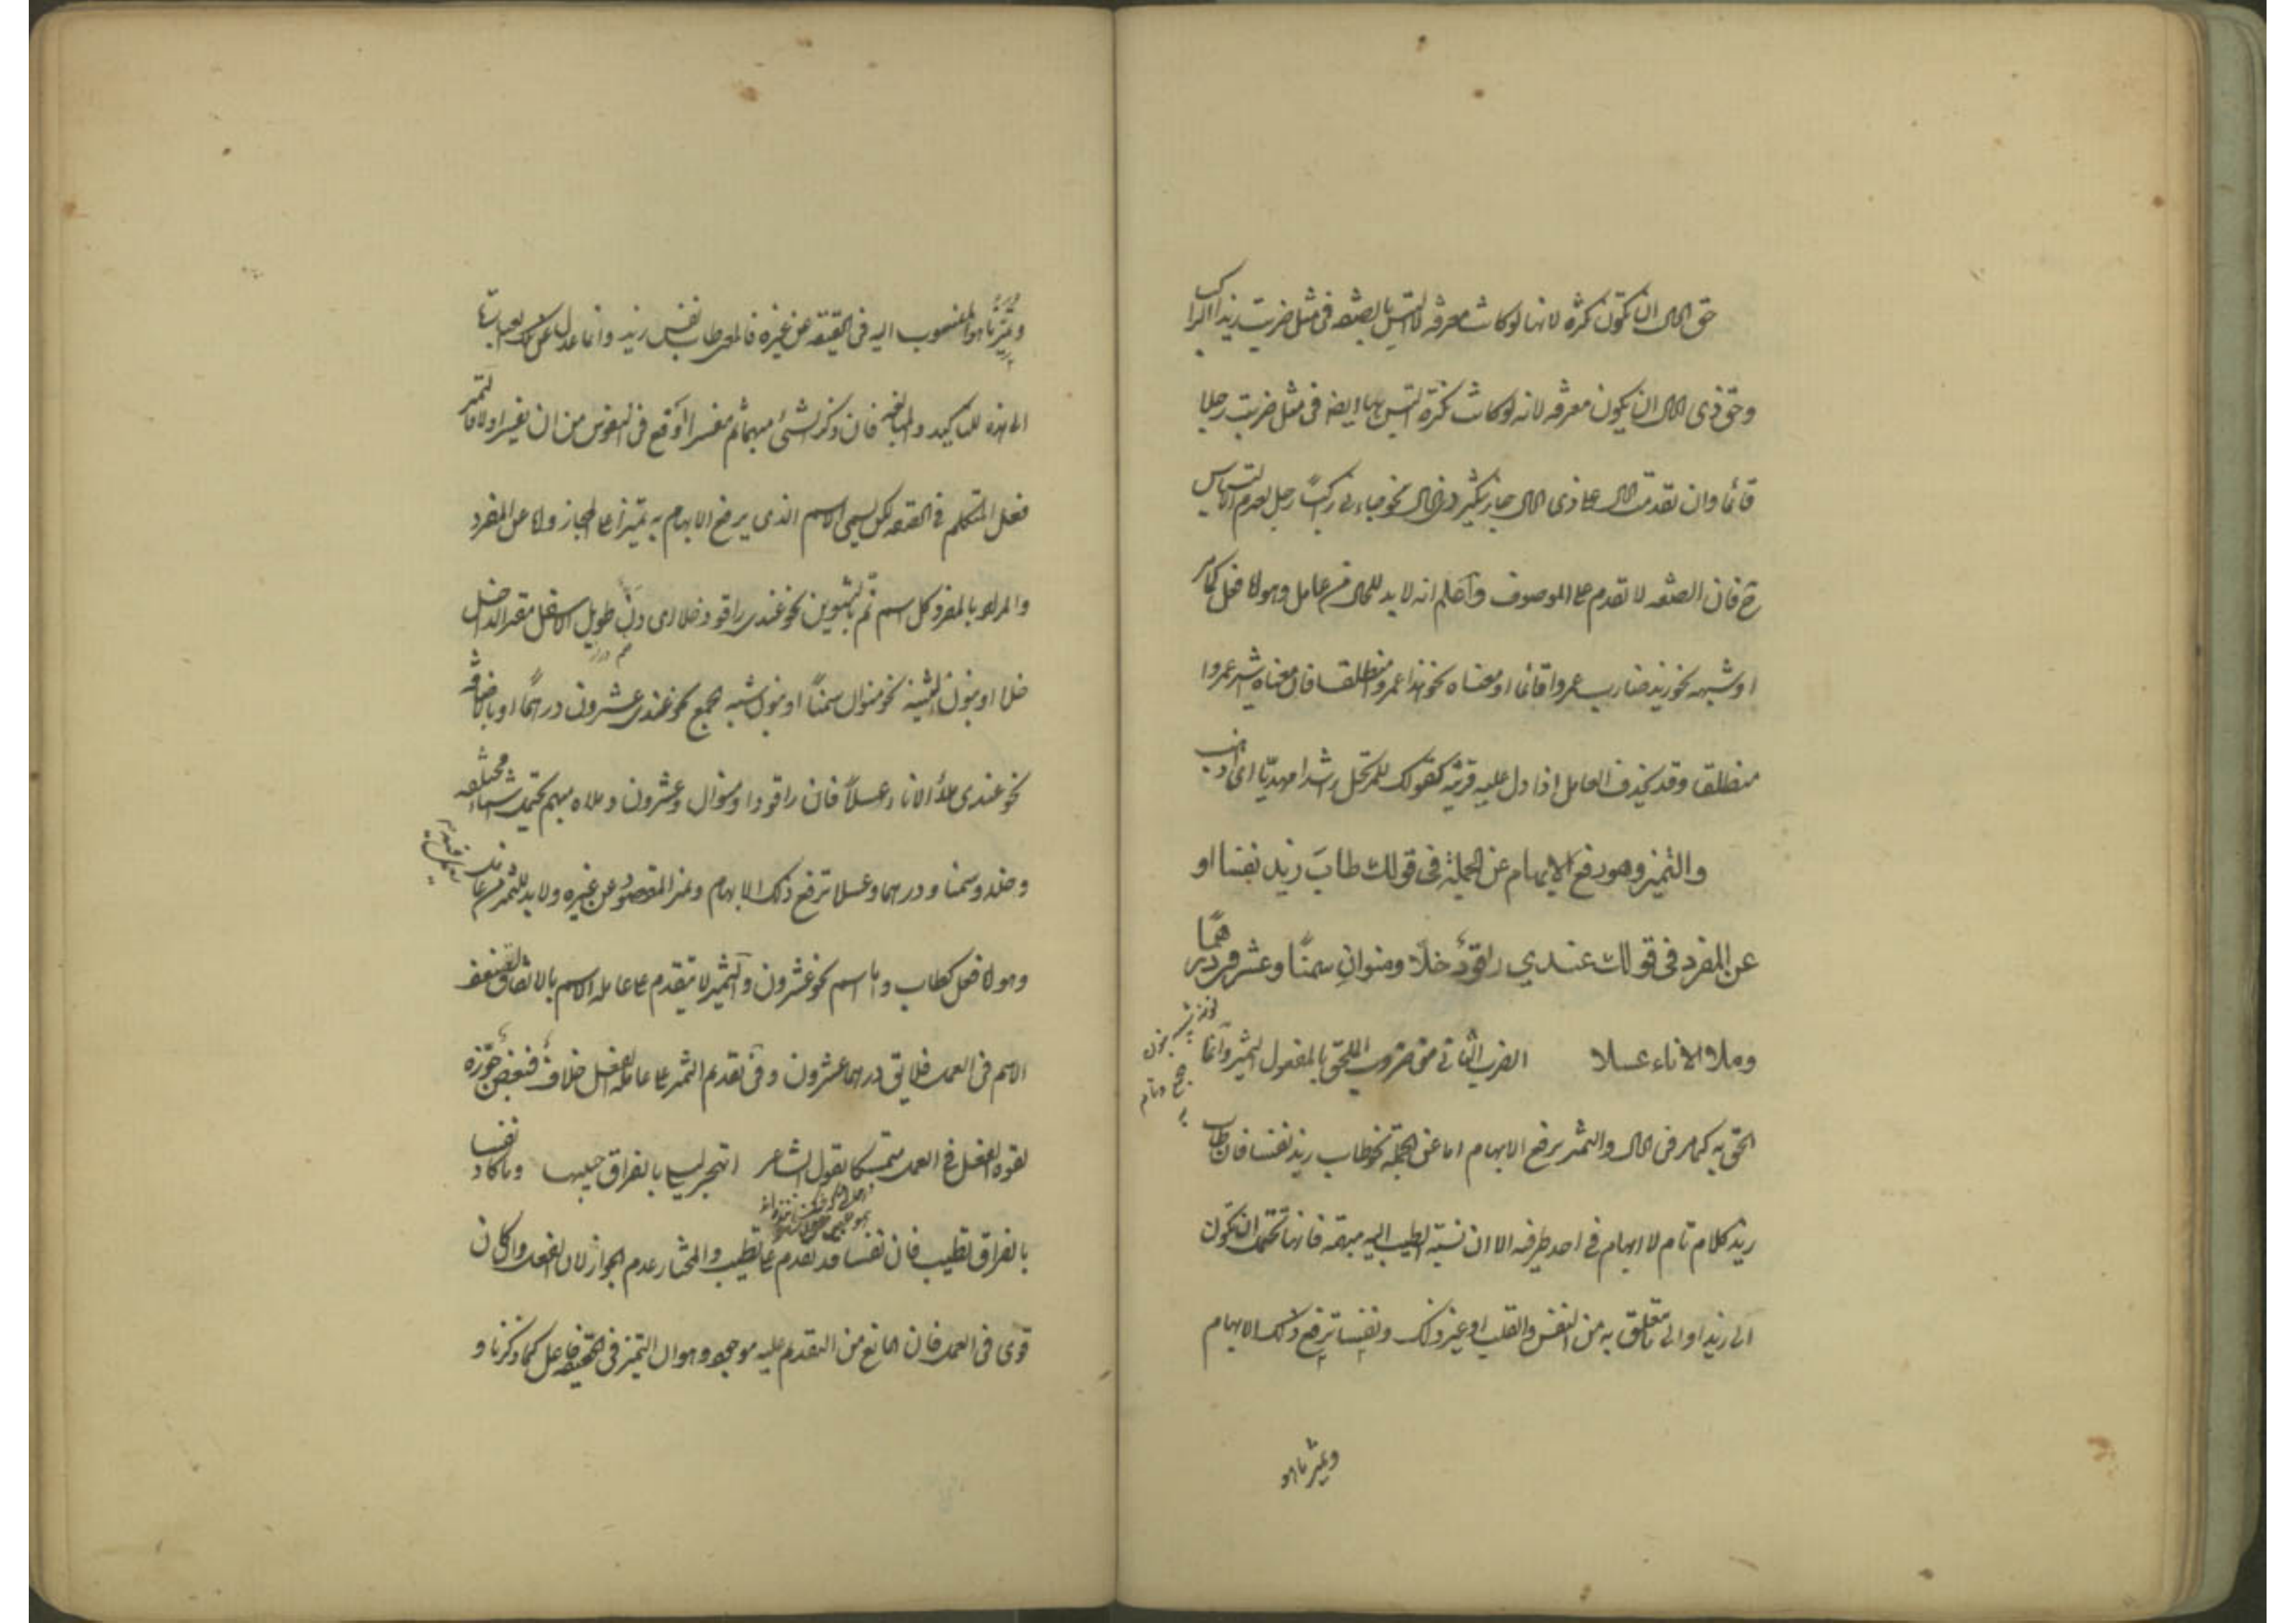 حق الحال ان تكون نكرة لانها لو كانت معرفة لالتبس بالصفة فى مثل ضربت زيدا الراكب
وحق ذى الحال ان يكون معرفة لانه لو كانت نكرة التبس بها ايضا فى مثل ضربت رجلا
قائما وان تقدمت الحال على ذى الحال جاز تنكير ذى الحال نحو جاءنى راكبًا رجل لعدم الالتباس
ح فان الصفة لا تقدم على الموصوف واعلم انه لا بد للحال من عامل وهو اما فعل كما مر
او شبهه نحو زيد ضارب عمروا قائما او معناه نحو هذا عمرو منطلقا فان معناه اشير عمروا
منطلقا وقد يحذف العامل اذا دل عليه قرينة كقولك للمرتحل راشدا مهديّا اى اذهب
والتميز وهو رفع الابهام عن الجملة فى قولك طابَ زيد نفسا او
عن المفرد فى قولك عندي راقودٌ خلّا ومنوانِ سمنًا وعشرون درهمًا
وملأ الاناء عسلا الضرب الثانى من ضروب الملحق بالمفعول التميز وانما
الحق به كما مر فى الحال والتميز يرفع الابهام اما عن الجملة نحو طاب زيد نفسا فان طاب
زيد كلام تام لا ابهام فى احد طرفيه الا ان نسبة الطيب اليه مبهمة فانها تحتمل ان تكون
الى زيد او الى ما تعلق به من النفس والقلب او غير ذلك ونفسا ترفع ذلك الابهام
وتميز ما هو
وتميز ما هو المنسوب اليه فى الحقيقة عن غيره فالمعنى طاب نفس زيد وانما عدل عن تلك العبارة
الى هذه للتاكيد والمبالغة فان ذكر الشئ مبهما ثم مفسرا اوقع فى النفوس من ان يفسر اولا فالتميز
فعل المتكلم فى الحقيقة لكن يسمى الاسم الذى يرفع الابهام به تميزا على المجاز واما عن المفرد
والمراد بالمفرد كل اسم تمّ بالتنوين نحو عندى راقود خلا اى دنّ طويل الاسفل مقير الداخل
خم دراز
خلا او بنون التثنية نحو منوان سمنًا او بنون شبه الجمع نحو عندى عشرون درهمًا او باضافة
نحو عندى ملأ الاناء عسلًا فان راقودا ومنوان وعشرون وملاه مبهم يحتمل اشياء مختلفة
وخلا وسمنا ودرهما وعسلا ترفع ذلك الابهام وتميز المقصود عن غيره ولا بد للتميز من عامل
وهو اما فعل كطاب واما اسم نحو عشرون والتميز لا يتقدم على عامله الاسم بالاتفاق لضعف
الاسم فى العمل فلا يق درهما عشرون وفى تقدم التميز على عامله الفعل خلاف فبعض جوزه
لقوة الفعل فى العمل متمسكا بقول الشاعر اتهجر ليلى بالفراق حبيبها وما كاد نفسا
بالفراق تطيب فان نفسا قد تقدم على تطيب والمختار عدم الجواز لان الفعل وان كان
قوى فى العمل فان المانع من التقدم عليه موجود وهو ان التميز فى الحقيقة فاعل كما ذكرنا و